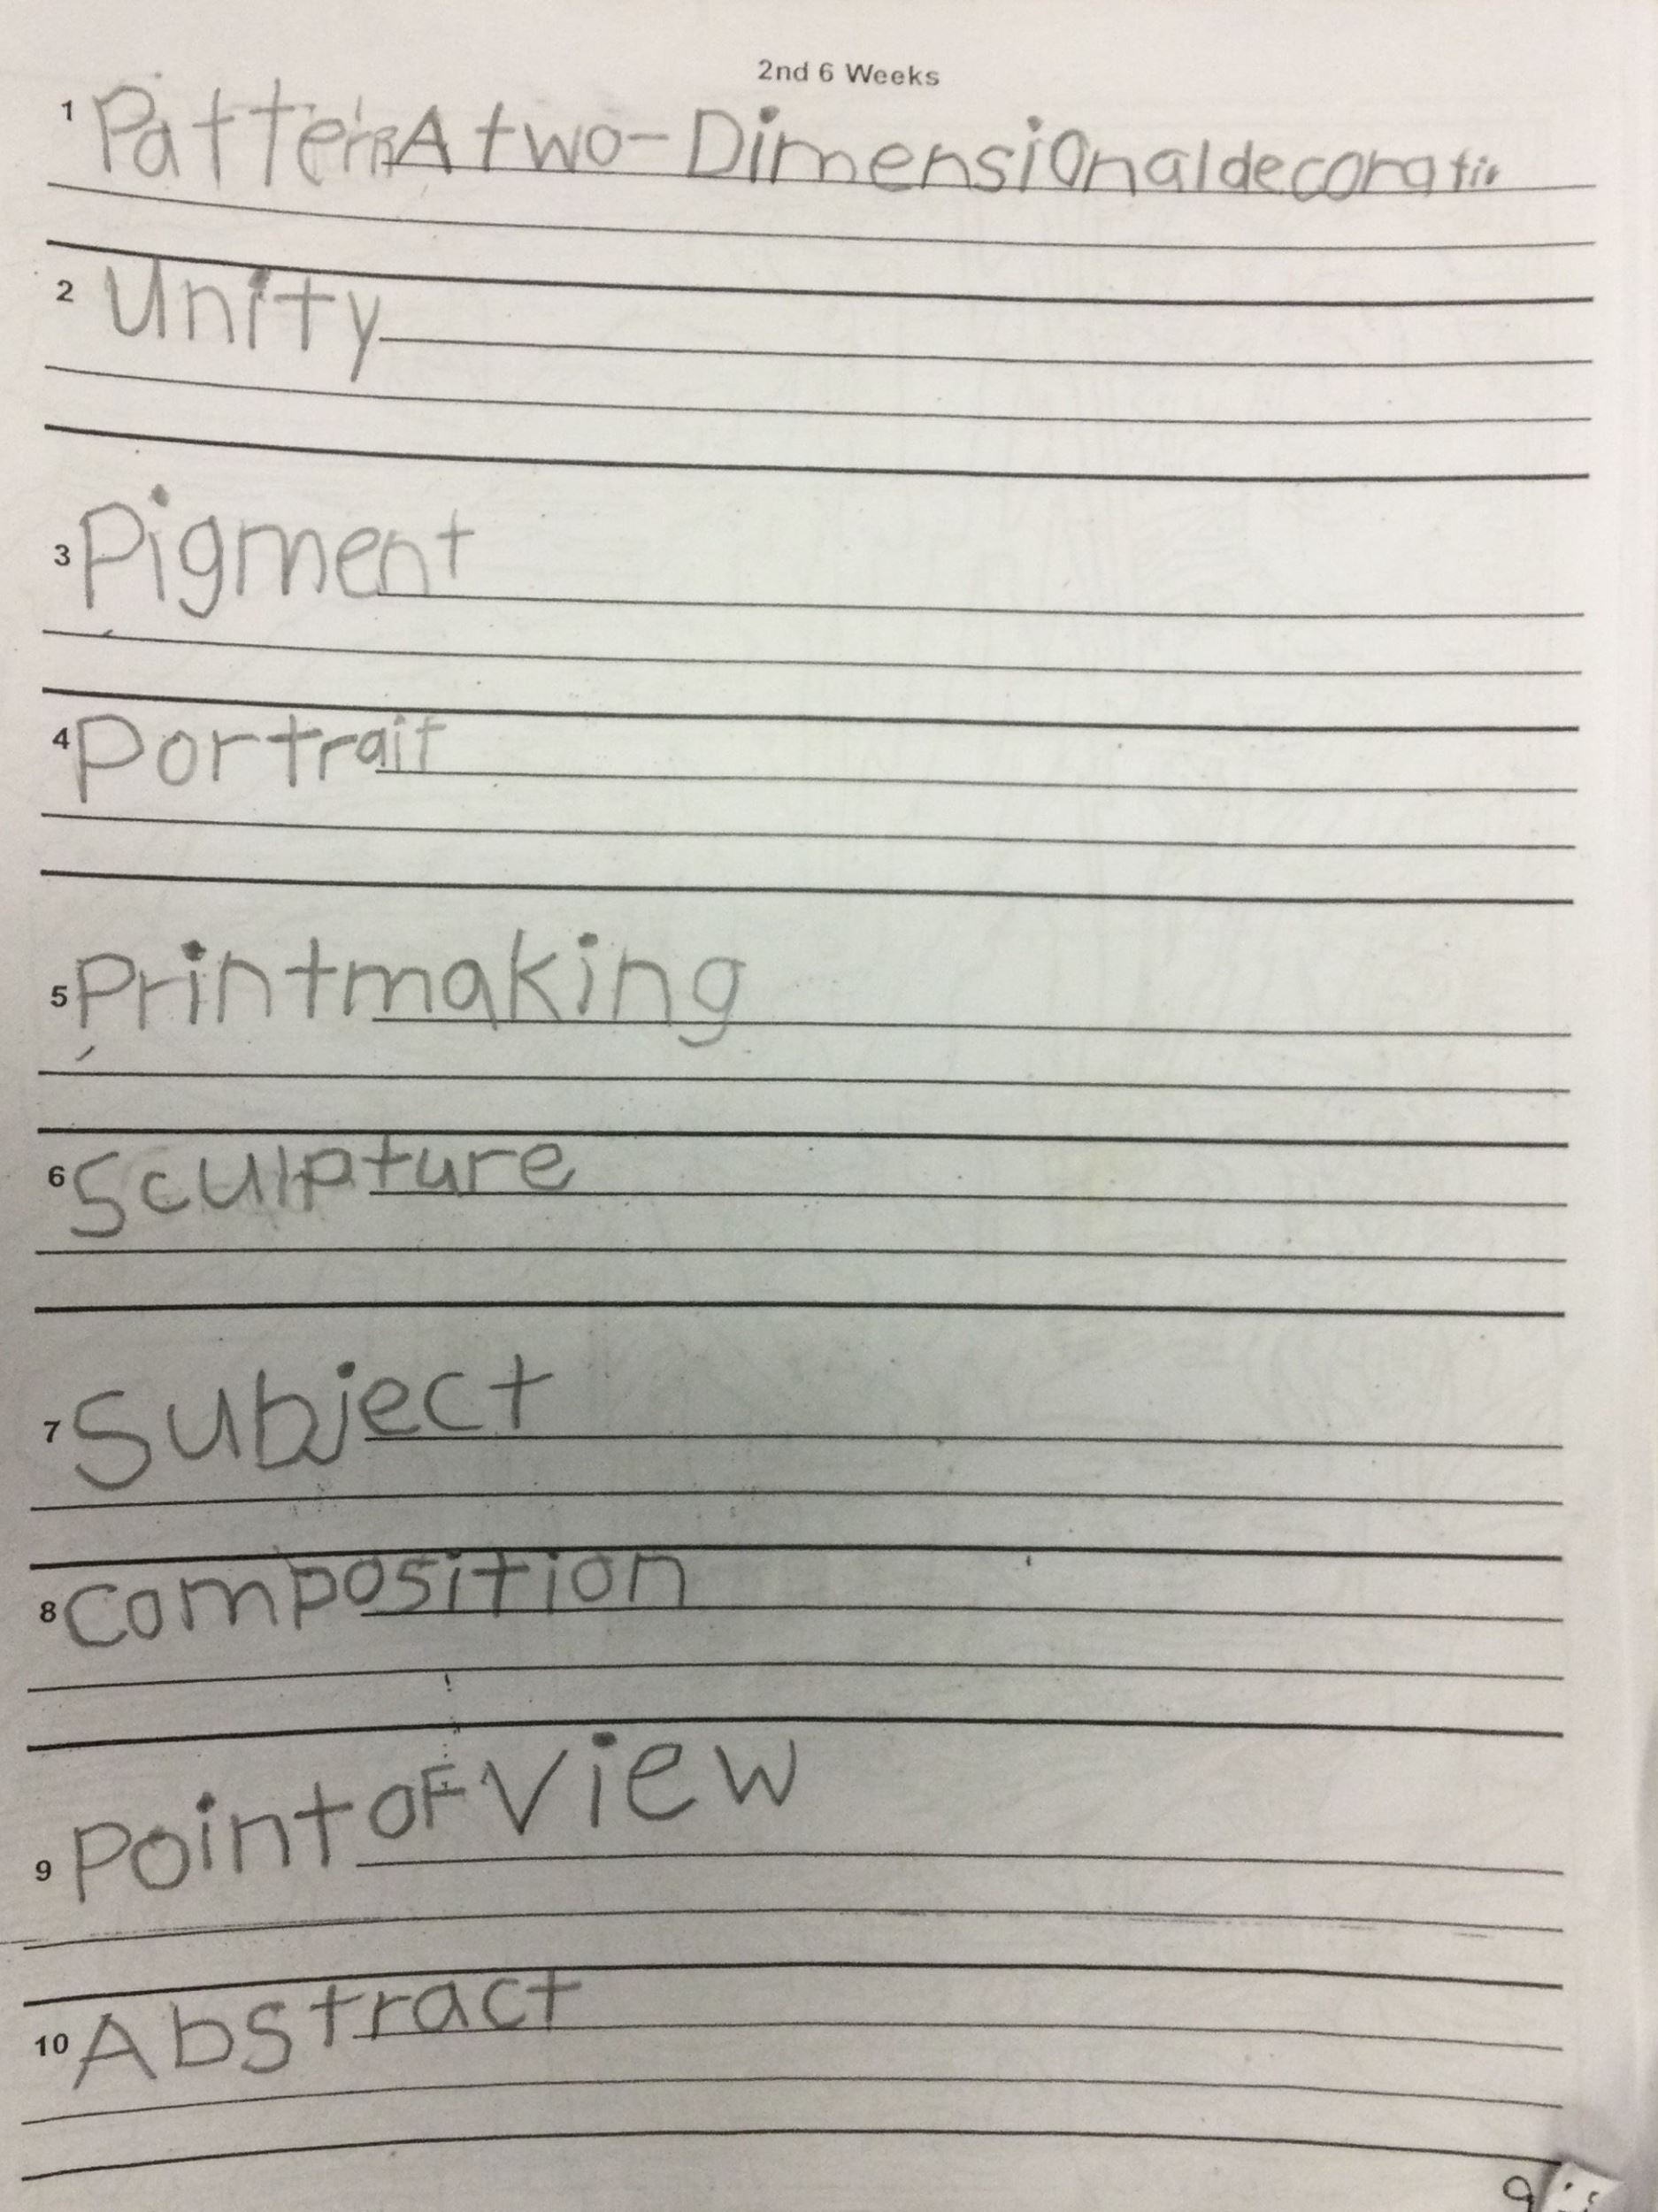 2nd 6 Weeks
1 Pattern A two-Dimensional
2 Unity
3 Pigment
4 Portrait
5 Printmaking
6 Sculpture
7 Subject
8 composition
9 Point oF View
10 Abstract
9